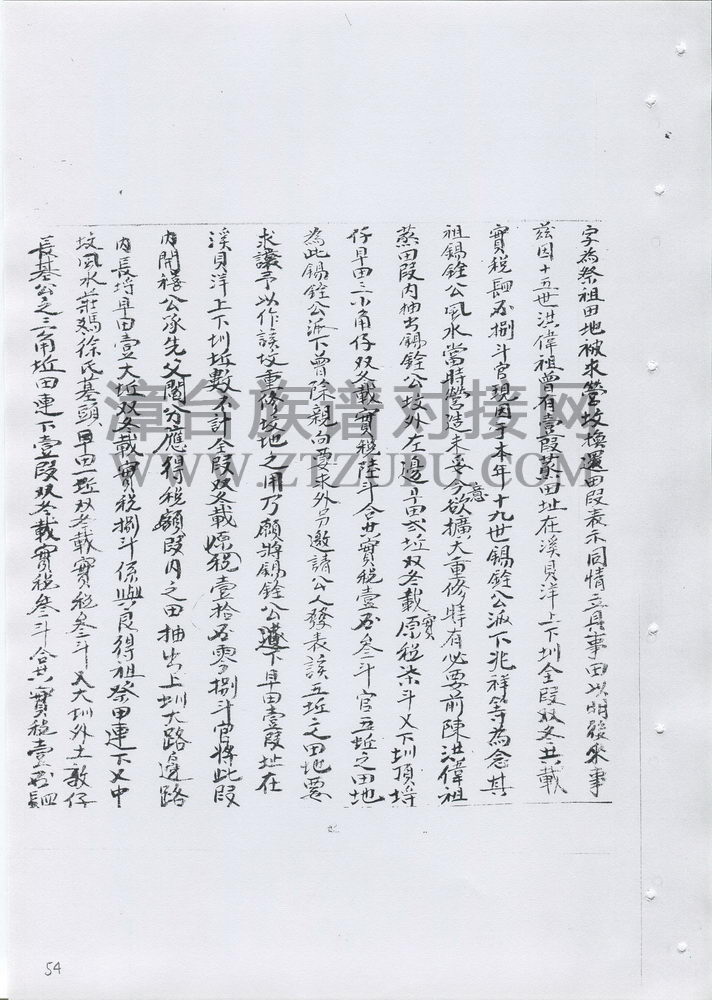 字為祭祖田地被求营坟換還田段表示同情立具事由以明後來事
茲因十五世洪偉祖曾有壹段蒸田址在溪貝洋上下圳全段双冬共載
實税肆石捌斗官現因于本年十九世錫銓公派下兆祥等為念其
祖錫銓公風水當時營造未妥今意欲擴大重修特有必要前陳洪偉祖
蒸田段内抽出錫銓公坟外左邊早田弍坵双冬載原實税柒斗又下圳頂埓
仔早田三小角仔双冬載實税陸斗合共實税壹石叁斗官五坵之田地
為此錫銓公派下曾除親向要求外另邀請公人發表該五坵之田地要
求讓予以作該坟重修坟地之用乃願將錫銓公遺下早田壹段址在
溪貝洋上下圳坵數不計全段双冬載原税壹拾石零捌斗官將此段
内開禧公承先父鬮分應得税額段内之田抽出上圳大路邊路
内長埓早田壹大坵双冬載實税捌斗係與良得祖祭田連下又中
坟風水莊媽徐氏墓頭早田一坵双冬載實税叁斗又大圳外土敦仔
長基公之三角坵田連下壹段双冬載實税叁斗合共實税壹石肆
54
漳台族谱对接网
WWW.ZTZUPU.COM